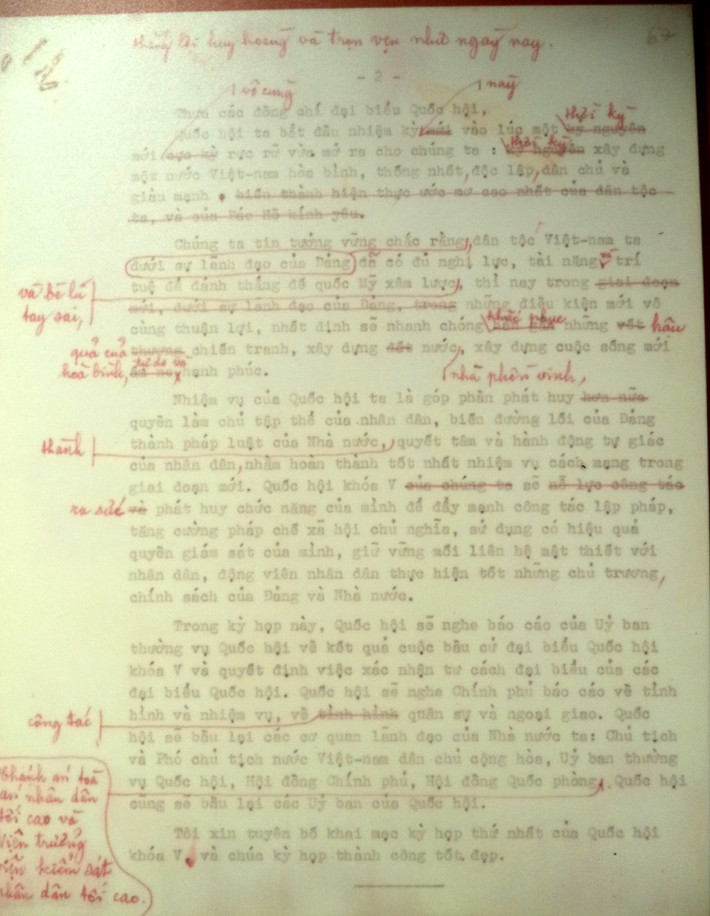 thắng lợi huy hoàng và trọn vẹn như ngày nay.
67
- 2 -
vô cùng
này
Thưa các đồng chí đại biểu Quốc hội,
thời kỳ
Quốc hội ta bắt đầu nhiệm kỳ mới vào lúc một kỷ nguyên
thời kỳ
mới cực kỳ rực rỡ vừa mở ra cho chúng ta : kỷ nguyên xây dựng
một nước Việt-nam hòa bình, thống nhất, độc lập, dân chủ và
giàu mạnh, biến thành hiện thực ước mơ cao nhất của dân tộc
ta, và của Bác Hồ kính yêu.
Chúng ta tin tưởng vững chắc rằng, dân tộc Việt-nam ta
dưới sự lãnh đạo của Đảng đã có đủ nghị lực, tài năng và trí
tuệ để đánh thắng đế quốc Mỹ xâm lược, thì nay trong giai đoạn
và bè lũ
tay sai,
mới, dưới sự lãnh đạo của Đảng, trong những điều kiện mới vô
khắc phục
cùng thuận lợi, nhất định sẽ nhanh chóng hàn gắn những vết hậu
quả của
thương chiến tranh, xây dựng đất nước, xây dựng cuộc sống mới
hoà bình,
tự do và
hạnh phúc.
nhà phồn vinh,
Nhiệm vụ của Quốc hội ta là góp phần phát huy hơn nữa
quyền làm chủ tập thể của nhân dân, biến đường lối của Đảng
thành
thành pháp luật của Nhà nước, quyết tâm và hành động tự giác
của nhân dân, nhằm hoàn thành tốt nhất nhiệm vụ cách mạng trong
giai đoạn mới. Quốc hội khóa V của chúng ta sẽ nỗ lực công tác
ra sức
và phát huy chức năng của mình để đẩy mạnh công tác lập pháp,
tăng cường pháp chế xã hội chủ nghĩa, sử dụng có hiệu quả
quyền giám sát của mình, giữ vững mối liên hệ mật thiết với
nhân dân, động viên nhân dân thực hiện tốt những chủ trương,
chính sách của Đảng và Nhà nước.
Trong kỳ họp này, Quốc hội sẽ nghe báo cáo của Uỷ ban
thường vụ Quốc hội về kết quả cuộc bầu cử đại biểu Quốc hội
khóa V và quyết định việc xác nhận tư cách đại biểu của các
đại biểu Quốc hội. Quốc hội sẽ nghe Chính phủ báo cáo về tình
công tác
hình và nhiệm vụ, về tình hình quân sự và ngoại giao. Quốc
hội sẽ bầu lại các cơ quan lãnh đạo của Nhà nước ta: Chủ tịch
và Phó chủ tịch nước Việt-nam dân chủ cộng hòa, Uỷ ban thường
vụ Quốc hội, Hội đồng Chính phủ, Hội đồng Quốc phòng, Quốc hội
cũng sẽ bầu lại các Uỷ ban của Quốc hội.
Chánh án toà
án nhân dân
tối cao và
Viện trưởng
viện kiểm sát
nhân dân tối cao.
Tôi xin tuyên bố khai mạc kỳ họp thứ nhất của Quốc hội
khóa V, và chúc kỳ họp thành công tốt đẹp.